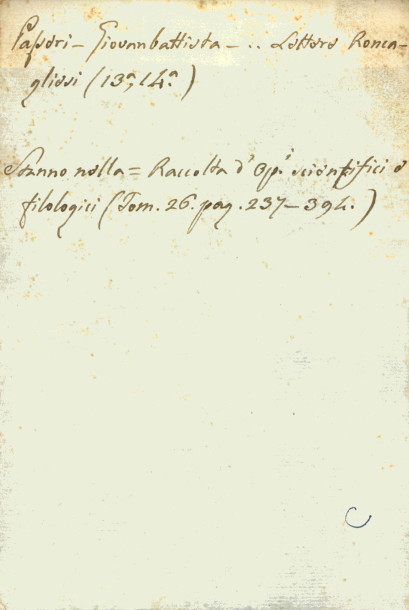 Passeri - Giovanbattista - .. Lettere Ronca-
gliesi (13ª, 14ª.)
Stanno nella = Raccolta d'Op.i scientifici e
filologici (Tom. 26. pag. 237-394.)
C